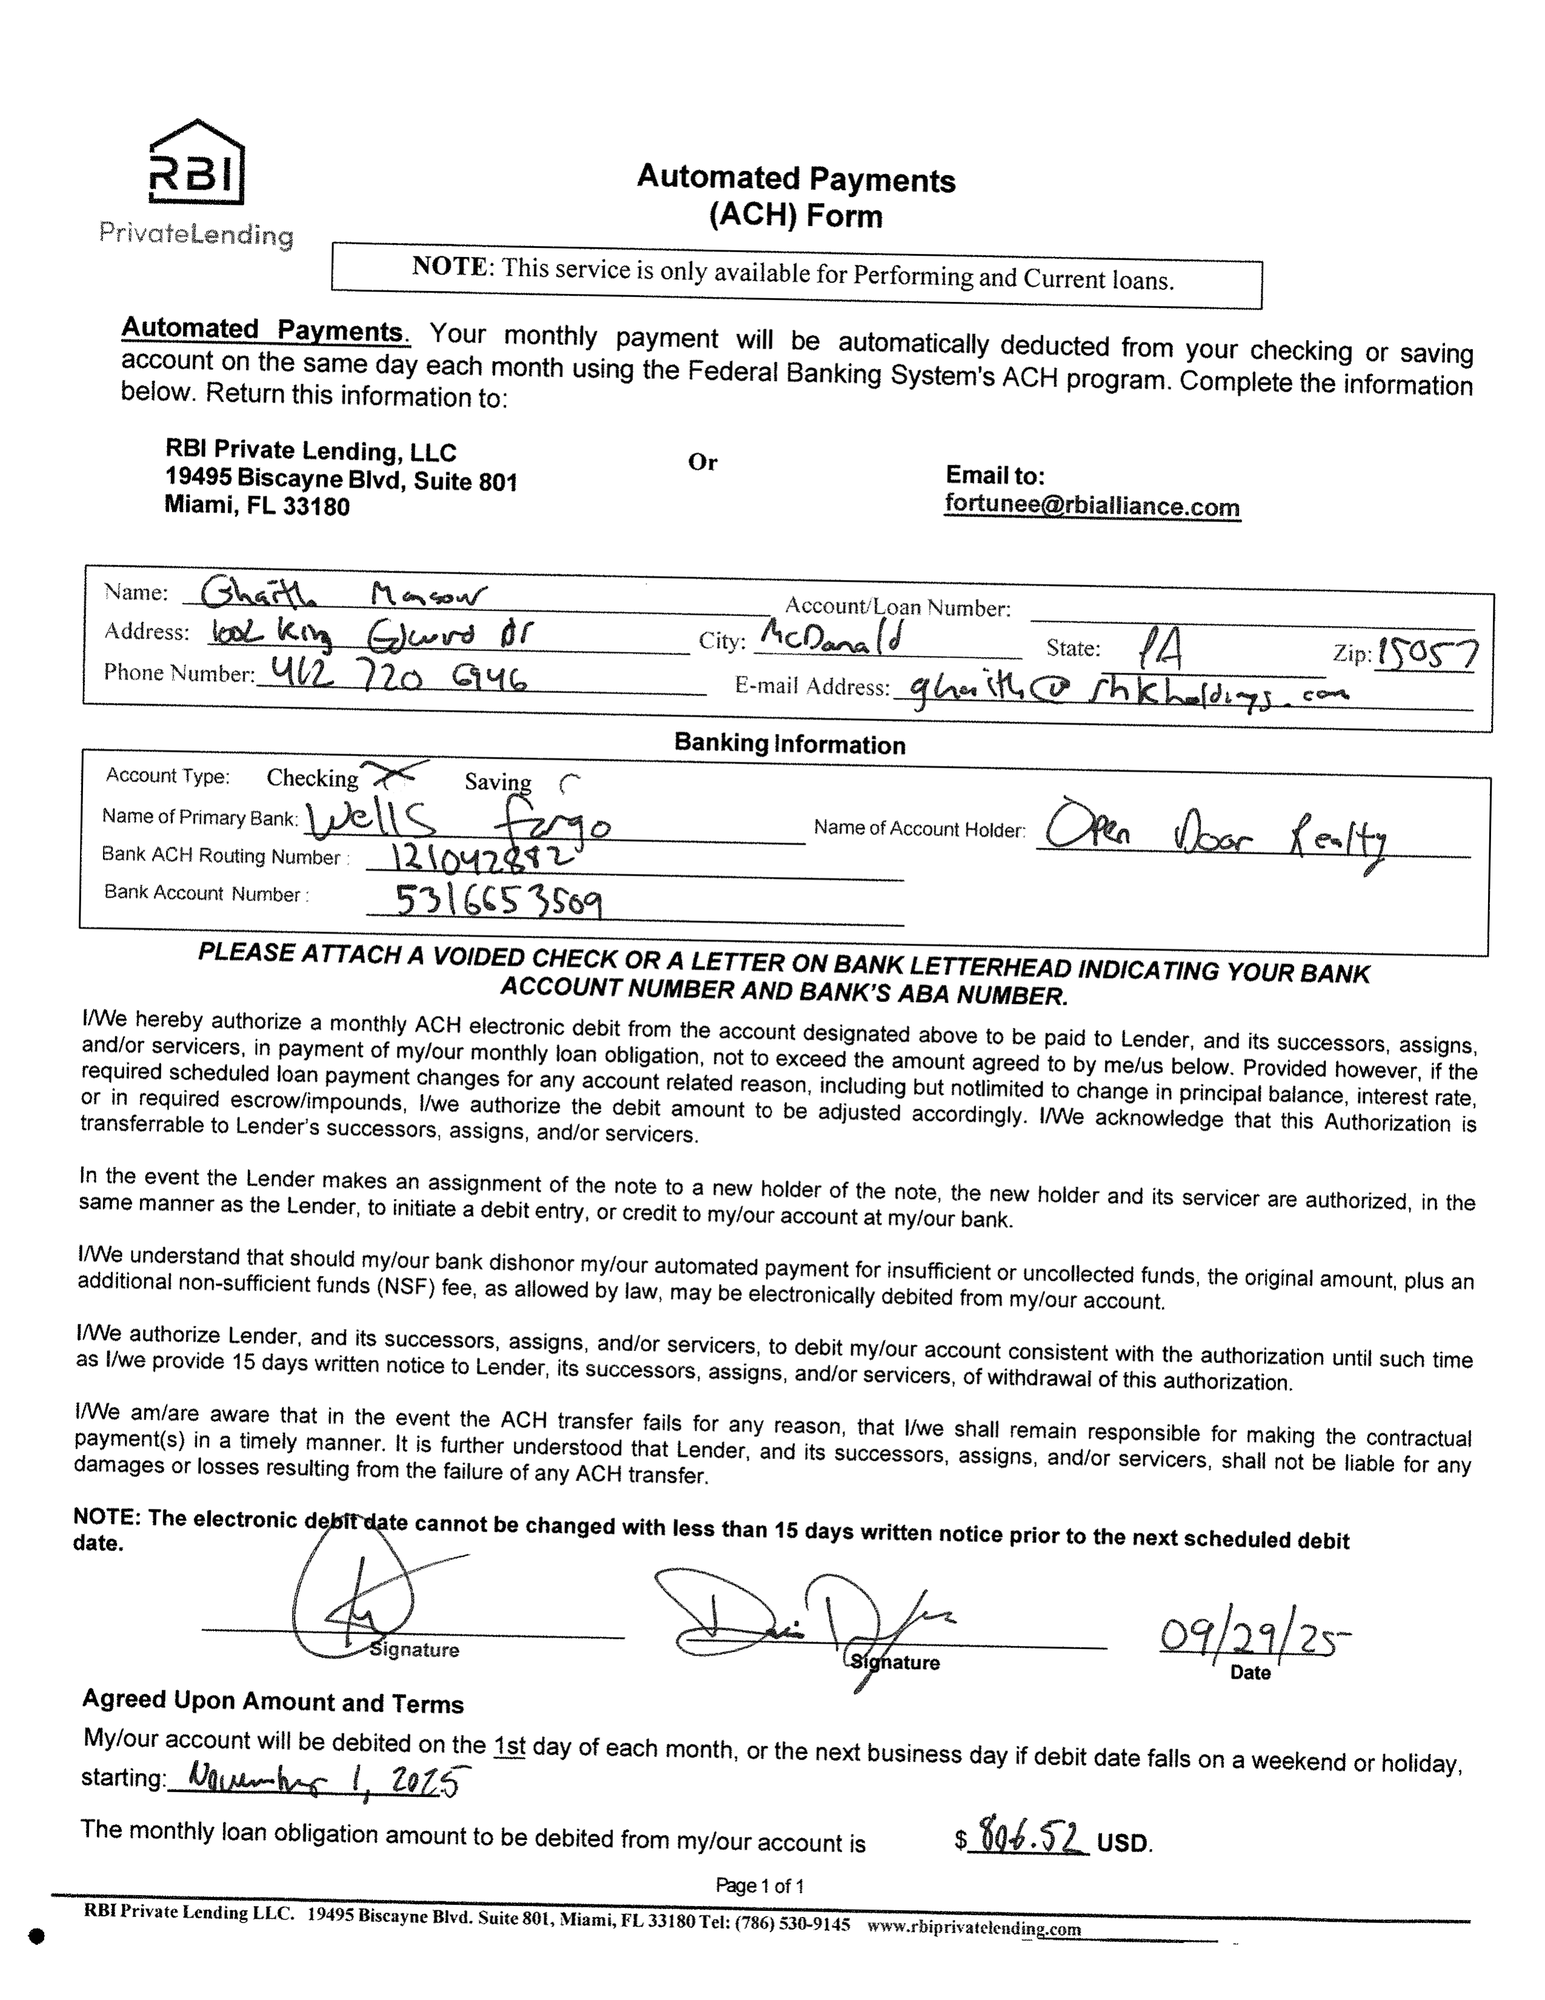 RBI
PrivateLending
Automated Payments
(ACH) Form
NOTE: This service is only available for Performing and Current loans.
Automated Payments. Your monthly payment will be automatically deducted from your checking or saving
account on the same day each month using the Federal Banking System's ACH program. Complete the information
below. Return this information to:
RBI Private Lending, LLC
19495 Biscayne Blvd, Suite 801
Miami, FL 33180
Or
Email to:
fortunee@rbialliance.com
Name: Ghaith Mansour Account/Loan Number:
Address: 1002 King Edward Dr City: McDonald State: PA Zip: 15057
Phone Number: 412 720 6946 E-mail Address: ghaith@shkholdings.com
Banking Information
Account Type: Checking X Saving
Name of Primary Bank: Wells Fargo Name of Account Holder: Open Door Realty
Bank ACH Routing Number : 121042882
Bank Account Number : 5316653509
PLEASE ATTACH A VOIDED CHECK OR A LETTER ON BANK LETTERHEAD INDICATING YOUR BANK
ACCOUNT NUMBER AND BANK'S ABA NUMBER.
I/We hereby authorize a monthly ACH electronic debit from the account designated above to be paid to Lender, and its successors, assigns,
and/or servicers, in payment of my/our monthly loan obligation, not to exceed the amount agreed to by me/us below. Provided however, if the
required scheduled loan payment changes for any account related reason, including but notlimited to change in principal balance, interest rate,
or in required escrow/impounds, I/we authorize the debit amount to be adjusted accordingly. I/We acknowledge that this Authorization is
transferrable to Lender's successors, assigns, and/or servicers.
In the event the Lender makes an assignment of the note to a new holder of the note, the new holder and its servicer are authorized, in the
same manner as the Lender, to initiate a debit entry, or credit to my/our account at my/our bank.
I/We understand that should my/our bank dishonor my/our automated payment for insufficient or uncollected funds, the original amount, plus an
additional non-sufficient funds (NSF) fee, as allowed by law, may be electronically debited from my/our account.
I/We authorize Lender, and its successors, assigns, and/or servicers, to debit my/our account consistent with the authorization until such time
as I/we provide 15 days written notice to Lender, its successors, assigns, and/or servicers, of withdrawal of this authorization.
I/We am/are aware that in the event the ACH transfer fails for any reason, that I/we shall remain responsible for making the contractual
payment(s) in a timely manner. It is further understood that Lender, and its successors, assigns, and/or servicers, shall not be liable for any
damages or losses resulting from the failure of any ACH transfer.
NOTE: The electronic debit date cannot be changed with less than 15 days written notice prior to the next scheduled debit
date.
09/29/25
Signature Signature Date
Agreed Upon Amount and Terms
My/our account will be debited on the 1st day of each month, or the next business day if debit date falls on a weekend or holiday,
starting: November 1, 2025
The monthly loan obligation amount to be debited from my/our account is $ 806.52 USD.
Page 1 of 1
RBI Private Lending LLC. 19495 Biscayne Blvd. Suite 801, Miami, FL 33180 Tel: (786) 530-9145 www.rbiprivatelending.com